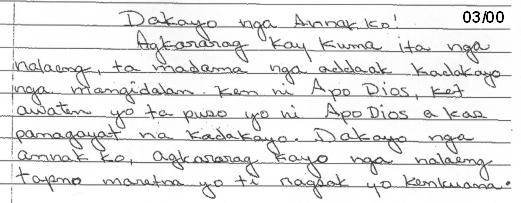 Dakayo nga Annak ko! 03/00
Agkararag kay kuma ita nga
nalaeng, ta madama nga addaak kadakayo
nga mangidalan ken ni Apo Dios, ket
awaten yo ta puso yo ni Apo Dios a kas
panagayat na kadakayo. Dakayo nga
annak ko, agkararag kayo nga nalaeng
tapno maretna yo ti nagdak yo kenkuana.